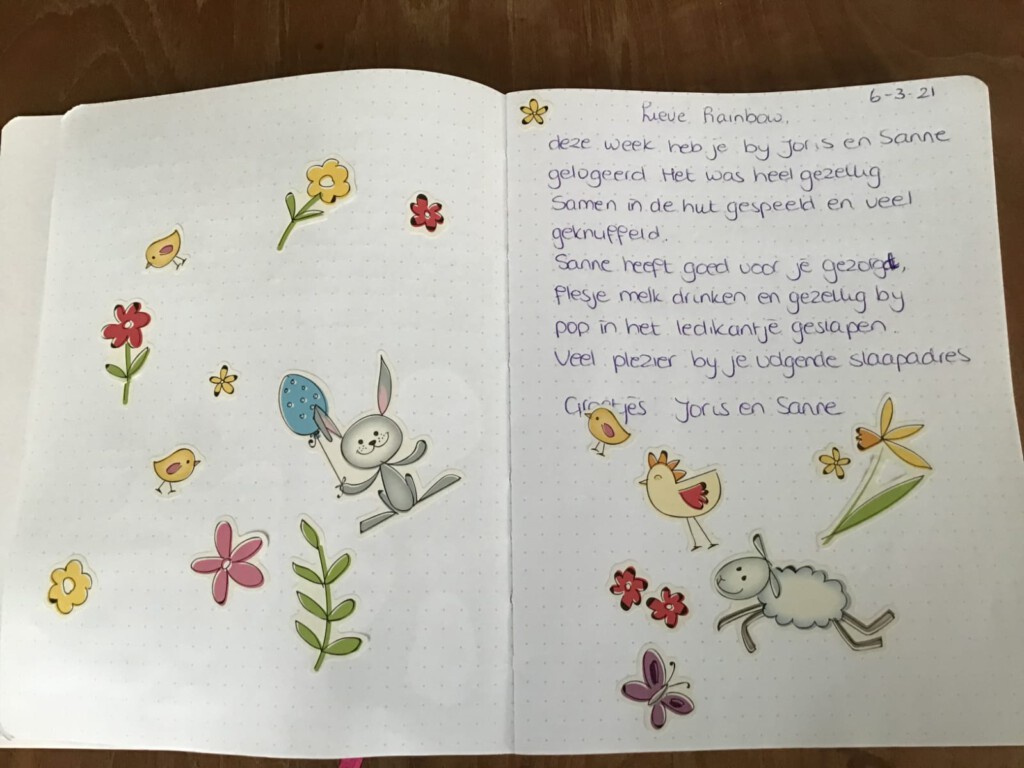 6-3-21
Lieve Rainbow,
deze week heb je by Joris en Sanne
gelogeerd Het was heel gezellig
Samen in de hut gespeeld en veel
geknuffeld.
Sanne heeft goed voor je gezorgd,
flesje melk drinken en gezellig by
pop in het ledikantje geslapen.
Veel plezier by je volgende slaapadres
Groetjes Joris en Sanne